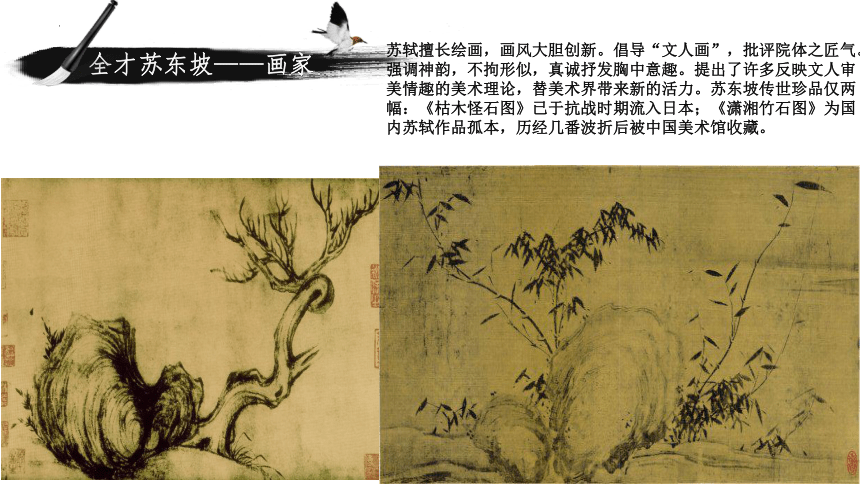 全才苏东坡——画家
苏轼擅长绘画，画风大胆创新。倡导“文人画”，批评院体之匠气。
强调神韵，不拘形似，真诚抒发胸中意趣。提出了许多反映文人审
美情趣的美术理论，替美术界带来新的活力。苏东坡传世珍品仅两
幅：《枯木怪石图》已于抗战时期流入日本；《潇湘竹石图》为国
内苏轼作品孤本，历经几番波折后被中国美术馆收藏。